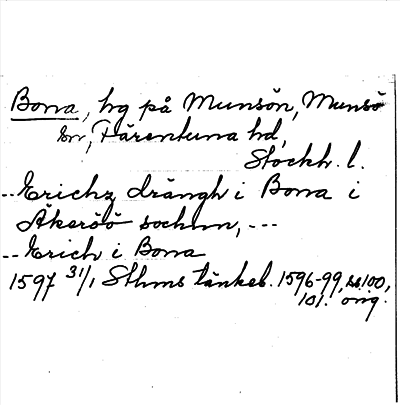 Bona, hg på Munsön, Munsö
sn, Färentuna hd,
Stockh. l.
-- Erichz drängh i Bona i
Åkersöö sochnn, ---
-- Erich i Bona
1597 31/1 Sthms tänkeb. 1596-99, ss. 100,
101. orig.